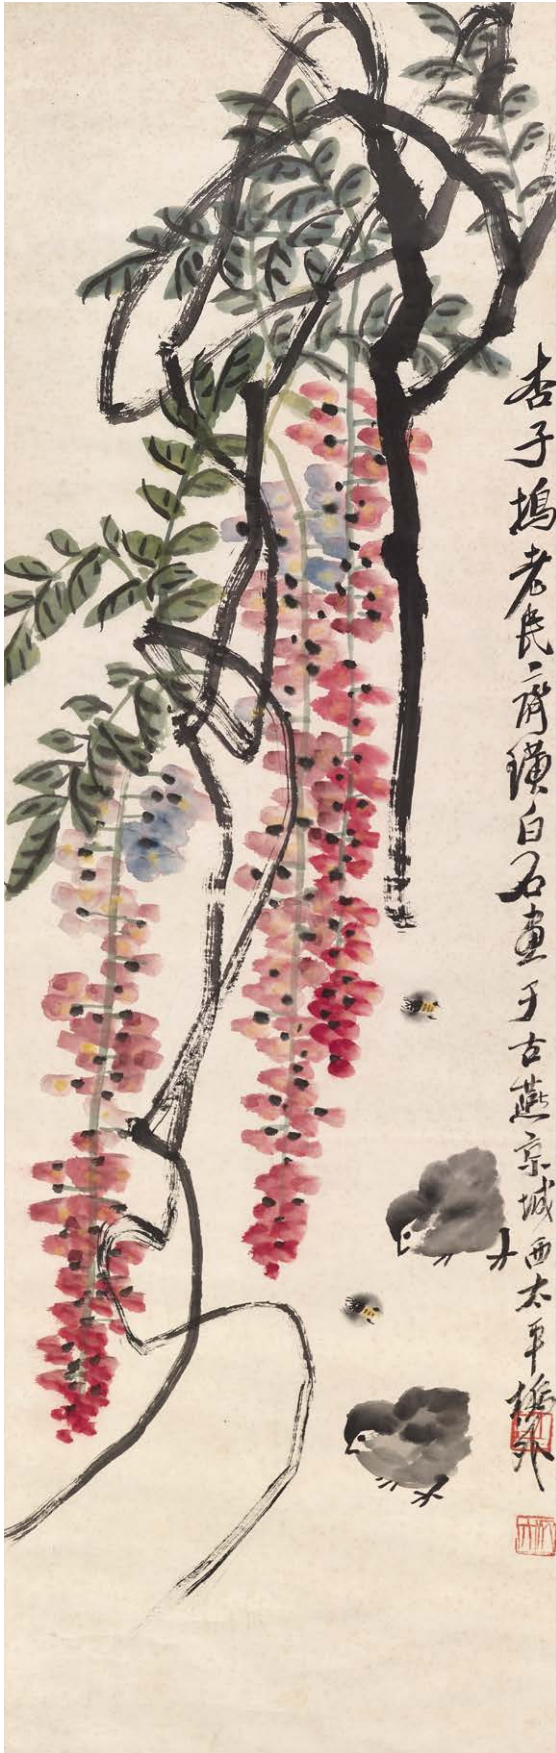 杏子塢老民齊璜白石畫于古燕京城西太平橋外